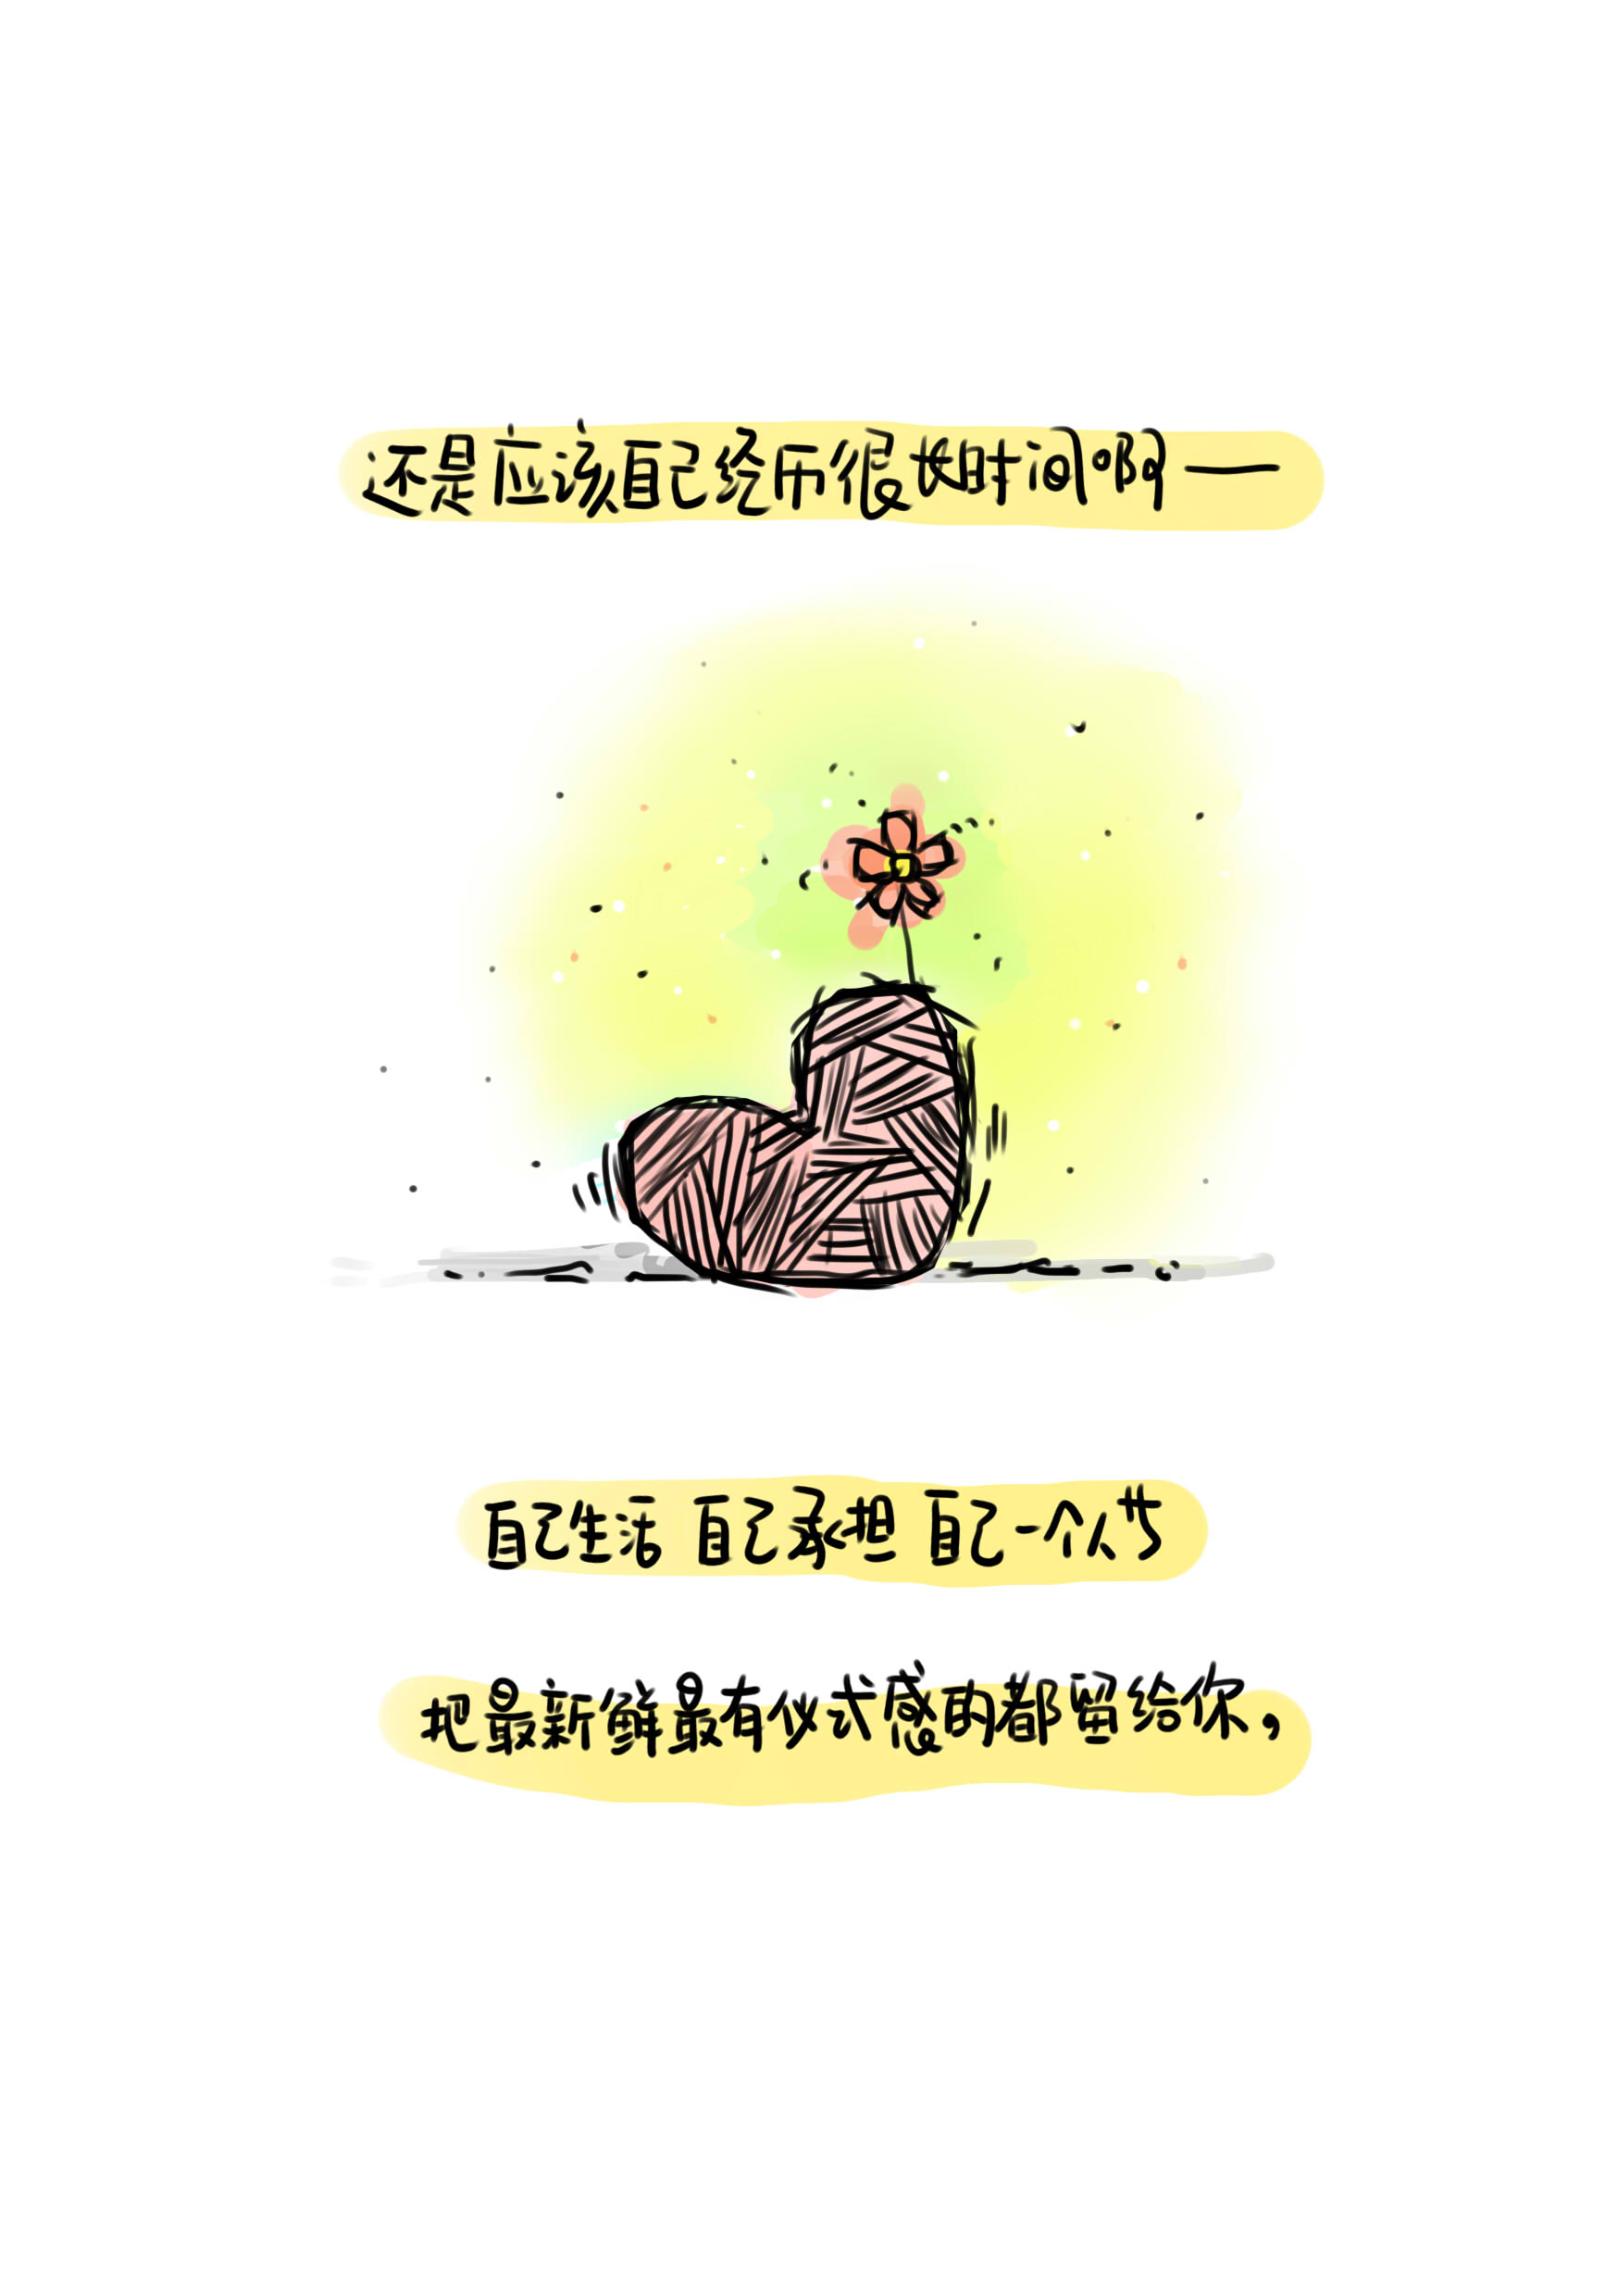 还是应该自己经历很长时间啊——
自己生活 自己承担 自己一个人
把最新鲜最有仪式感的都留给你，